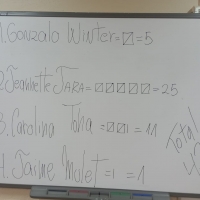 1. Gonzalo Winter= ☒=5
2. Jeannette JARA= ☒☒☒☒☒=25
3. Carolina Toha =☒☒1 = 11
4. Jaime Mulet =1 =1
Total